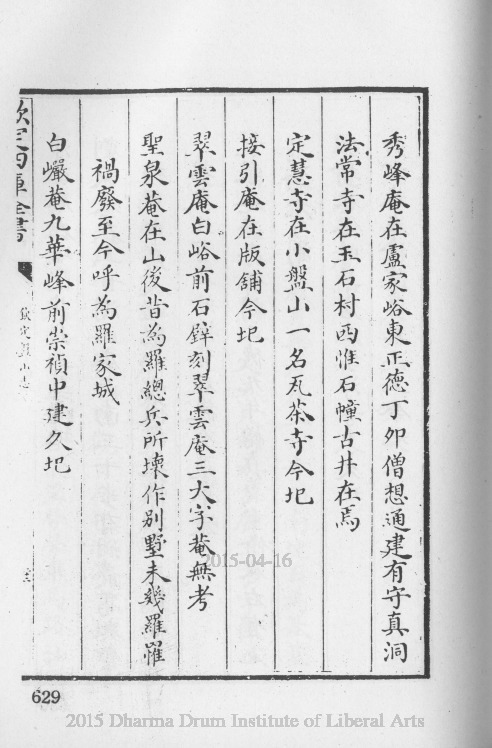 秀峰庵在盧家峪東正德丁夘僧想通建有守真洞
法常寺在玉石村西惟石幢古井在焉
定慧寺在小盤山一名瓦茶寺今圮
接引庵在版舖今圮
翠雲庵白峪前石鐴刻翠雲庵三大字菴無考
聖泉菴在山後昔為羅總兵所壊作别墅未幾羅罹
禍廢至今呼為羅家城
白巘菴九華峰前崇禎中建久圮
欽定四庫全書
欽定盤山志
629
2015-04-16
2015 Dharma Drum Institute of Liberal Arts